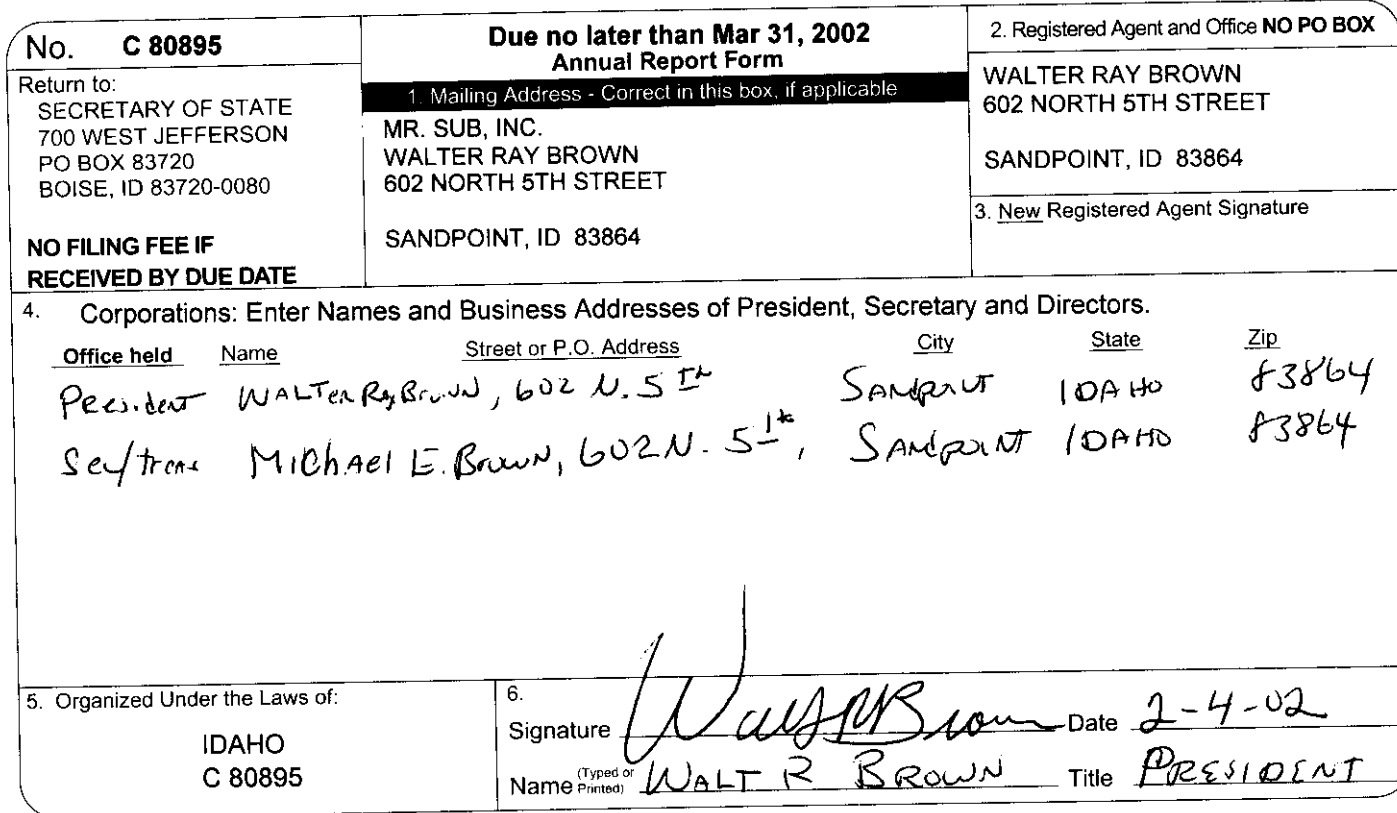 No. C 80895
Return to:
SECRETARY OF STATE
700 WEST JEFFERSON
PO BOX 83720
BOISE, ID 83720-0080
NO FILING FEE IF
RECEIVED BY DUE DATE
Due no later than Mar 31, 2002
Annual Report Form
1. Mailing Address - Correct in this box, if applicable
MR. SUB, INC.
WALTER RAY BROWN
602 NORTH 5TH STREET
SANDPOINT, ID 83864
2. Registered Agent and Office NO PO BOX
WALTER RAY BROWN
602 NORTH 5TH STREET
SANDPOINT, ID 83864
3. New Registered Agent Signature
4. Corporations: Enter Names and Business Addresses of President, Secretary and Directors.
Office held Name Street or P.O. Address City State Zip
President WALTER Ray Brown, 602 N. 5th SANDPOINT IDAHO 83864
Sec/treas MIChAEl E. Brown, 602 N. 5th, SANDPOINT IDAHO 83864
5. Organized Under the Laws of:
IDAHO
C 80895
6.
Signature Walt R Brown Date 2-4-02
Name (Typed or Printed) WALT R BROWN Title PRESIDENT